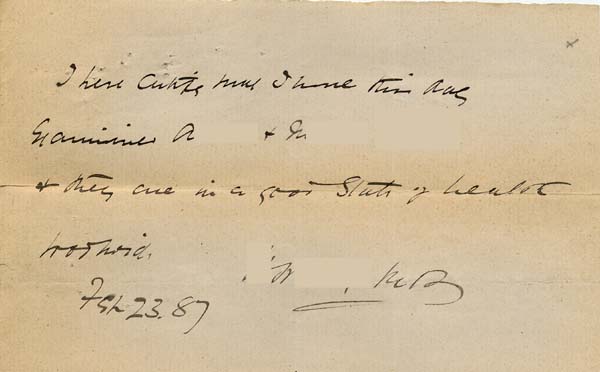 I here Certify that I have this day
Examined A & M
& they are in a good State of health
Feb 23. 87 M.B.